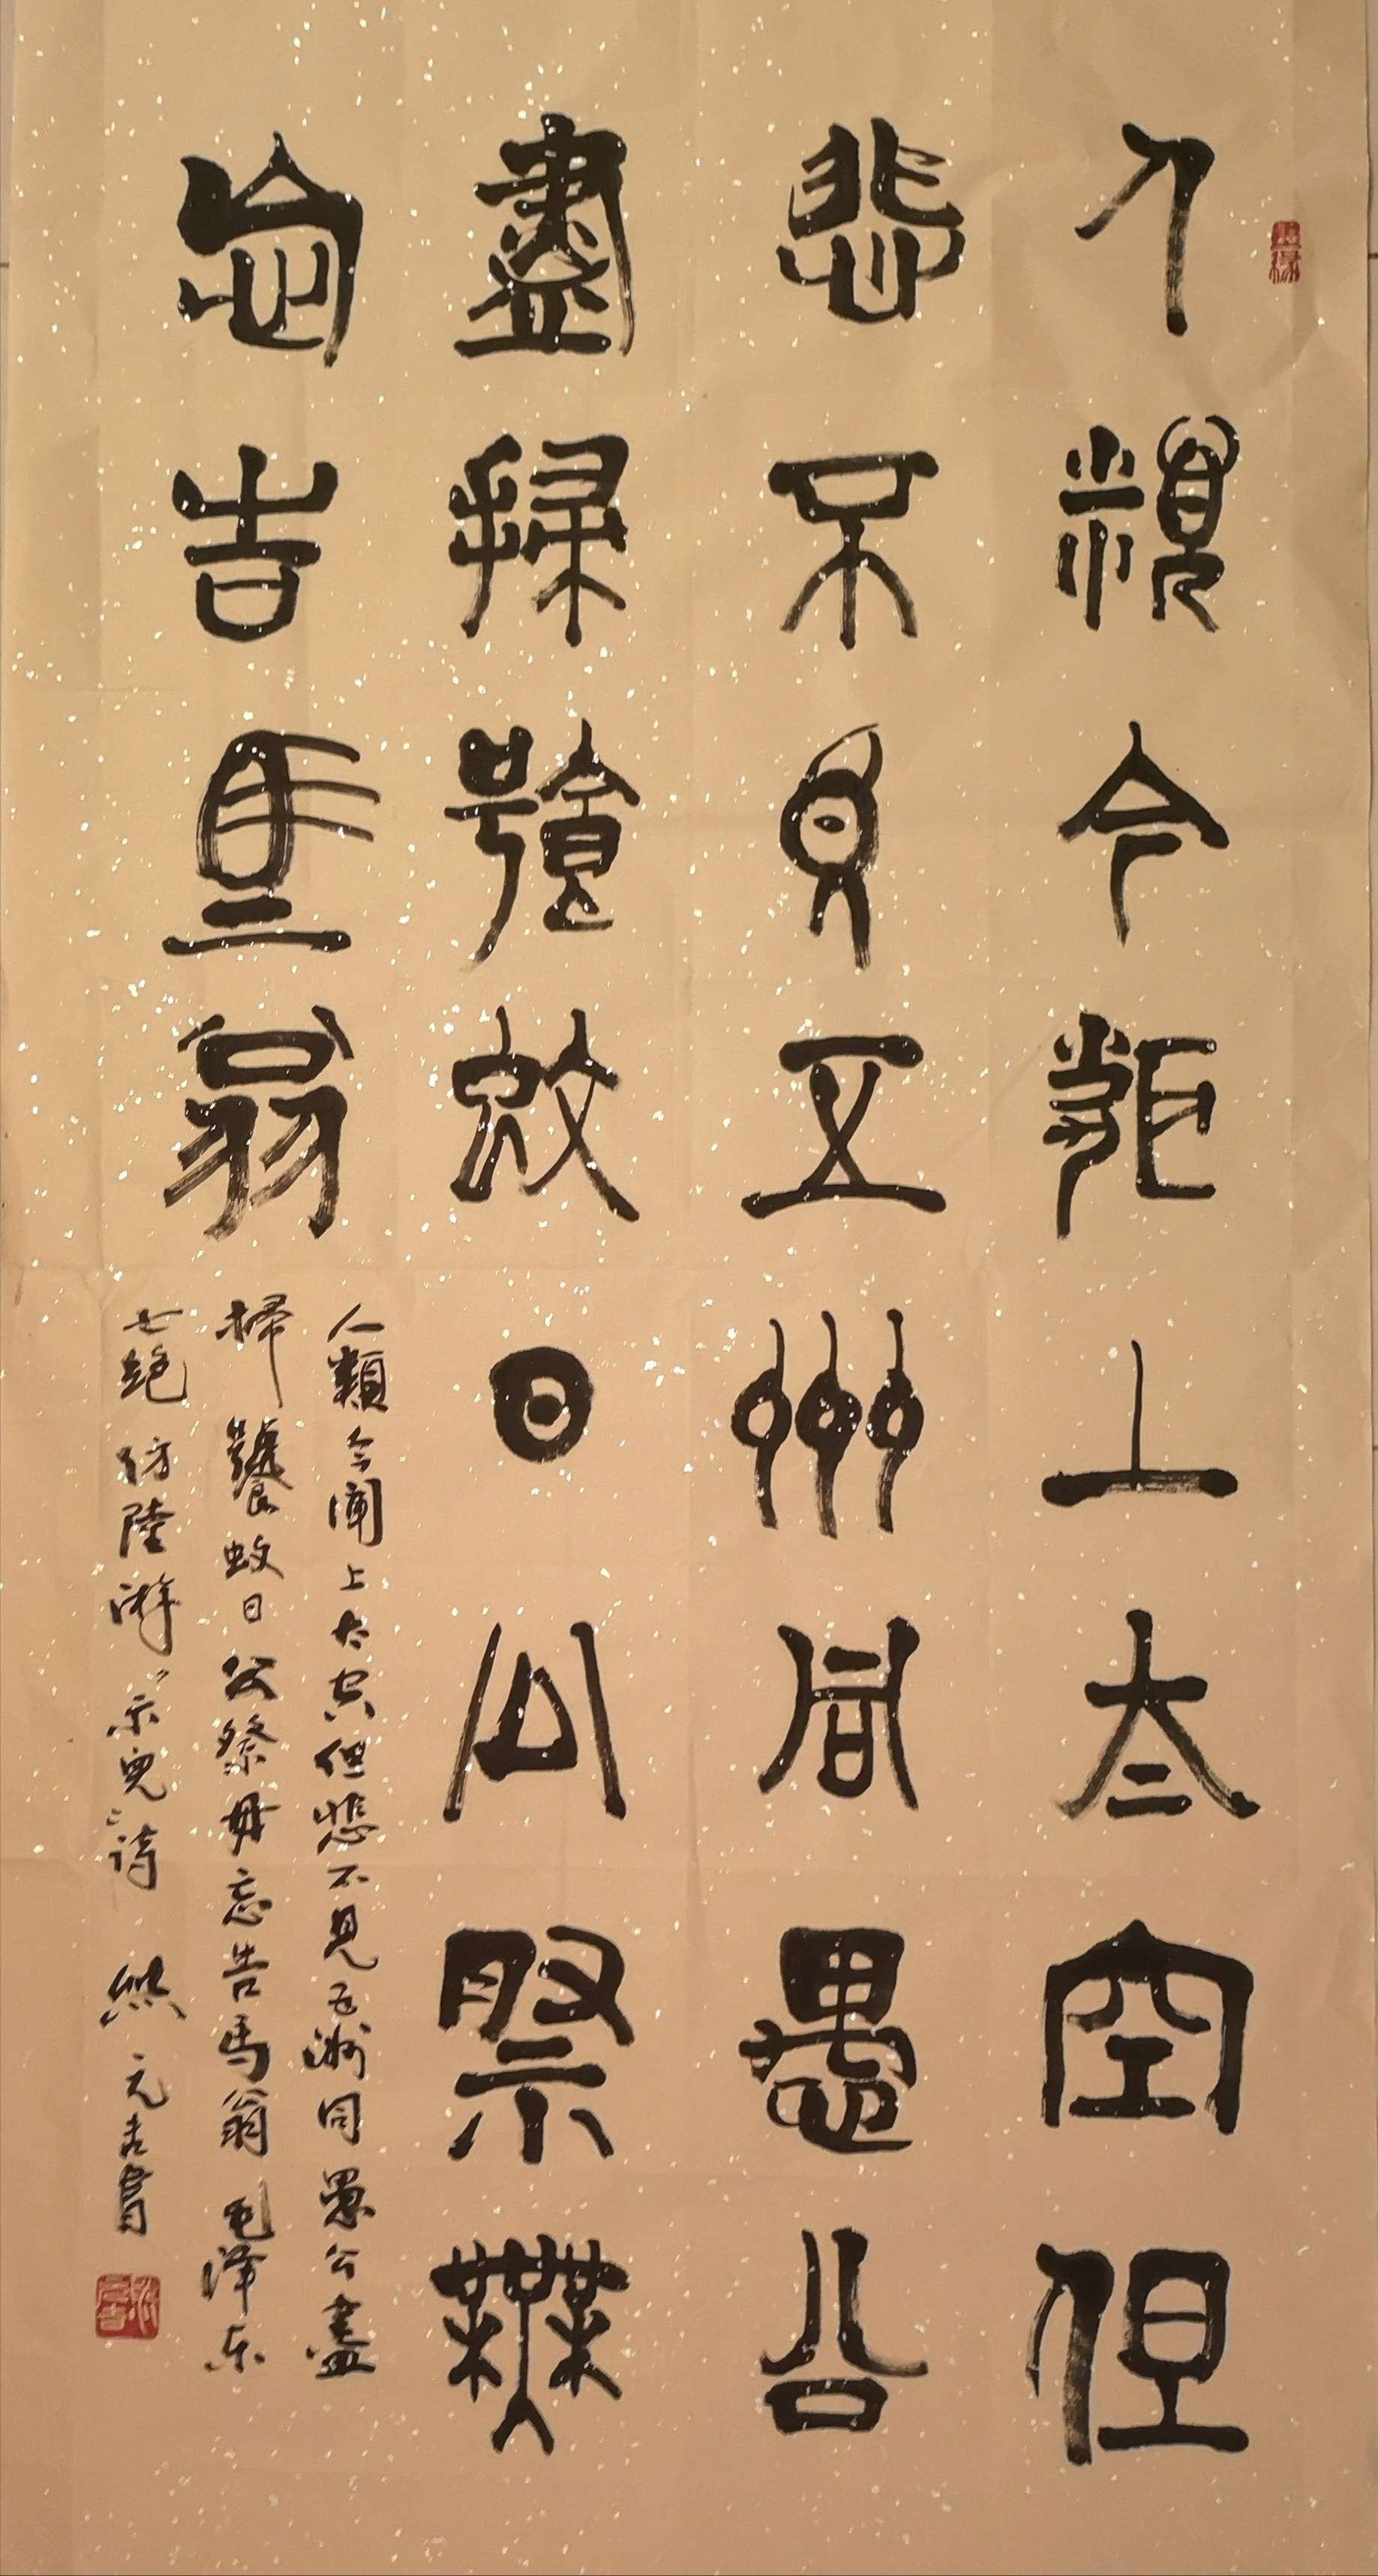 人類今闻上太空但
悲不見五洲同愚公
盡掃饕蚊日公祭無
忘告馬翁
人類今闻上太空但悲不見五洲同愚公盡
掃饕蚊日公祭毋忘告馬翁毛泽东
七绝仿陸游"示兒"诗 熊元吉書